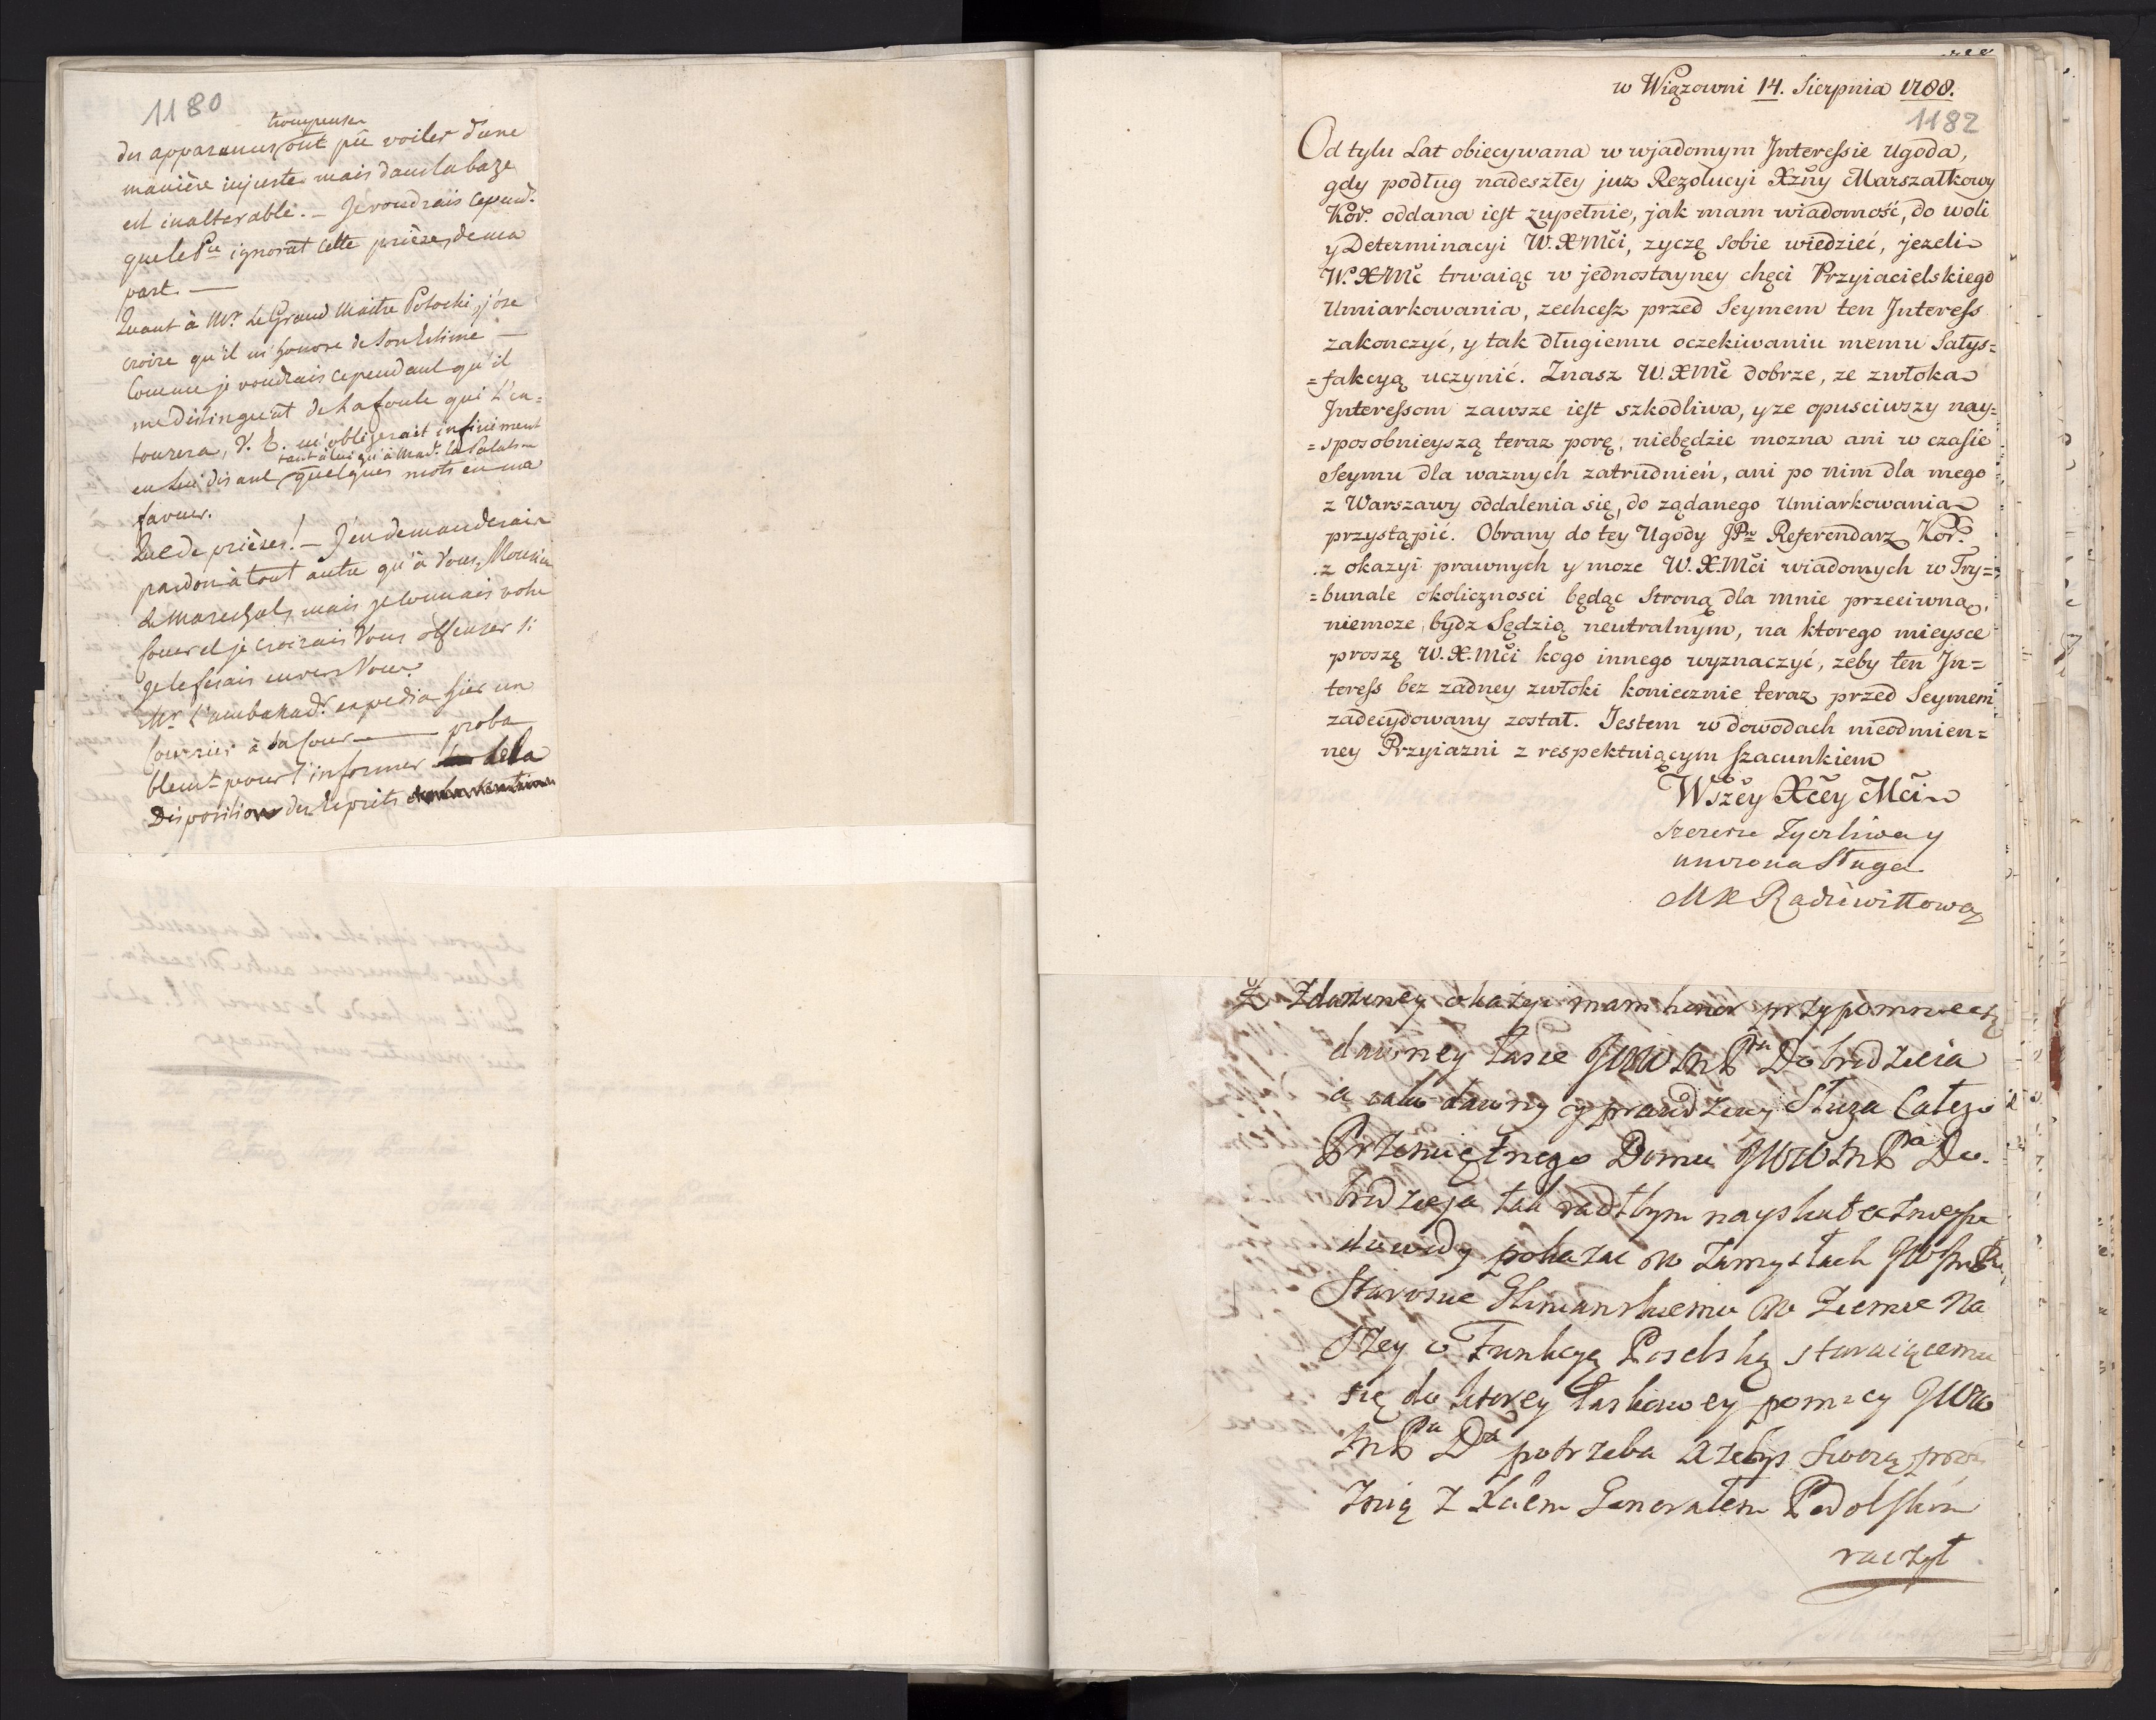 1180
trompeuses
des apparences ont pû voiler d'une
manière injuste mais dans la baze
est inaltérable. — Je voudrais cepend.
que le Pce ignorât cette prière, de ma
part. —
Quant à Mr. Le Grand Maitre Potocki, j'ose
croire qu'il m'honore de son Estime —
Comme je voudrais cependant qu'il
me distinguât de la foule qui l'en=
tourera, V. E. m'obligerait infiniment
tant à lui qu'à Made. la
en lui disant quelques mots en ma
faveur.
Que de prières! — J'en demanderais
pardon à tout autre qu'à Vous, Monsieur
le Marechal, mais je connais votre
Coeur et je croirais Vous offenser si
je le ferais envers Vous.
Mr. L'ambassadr. expedia hier un
Courrier à sa Cour — proba
blemt. pour l'informer de la
Disposition des Esprits
w Wiązowni 14. Sierpnia 1788.
1182
Od tylu Lat obiecywana w wjadomym Interessie Ugoda,
gdy podług nadeszłey juz Rezolucyi Xzny Marszałkowy
Kor. oddana iest zupełnie, jak mam wiadomość, do woli
y Determinacyi W. XMci, zyczę sobie wiedzieć, jezeli
W. XMć trwaiąc w jednostayney chęci Przyiacielskiego
Umiarkowania, zechcesz przed Seymem ten Interess
zakonczyć, y tak długiemu oczekiwaniu memu Satys=
=fakcyą uczynić. Znasz W. XMć dobrze, ze zwłoka
Interessom zawsze iest szkodliwa, y ze opusciwszy nay=
=sposobnieyszą teraz porę, niebędzie mozna ani w czasie
Seymu dla waznych zatrudnień, ani po nim dla mego
z Warszawy oddalenia się, do ządanego Umiarkowania
przystąpić. Obrany do tey Ugody JPn Referendarz Kor.
z okazyi prawnych y moze W. X. Mci wiadomych w Try=
=bunale okolicznosci będąc Stroną dla mnie przeciwną,
niemoze bydz Sędzią neutralnym, na ktorego mieysce
proszę W. X. Mci kogo innego wyznaczyć, zeby ten In=
teress bez zadney zwłoki koniecznie teraz przed Seymem
zadecydowany został. Jestem w dowodach nieodmien=
ney Przyiazni z respektuiącym szacunkiem
Wszey Xcey Mci
szczerze Zyczliwa y
unizona Sługa
MK Radziwiłłowa
Z Zdarzoney okazyi mam honor przypomniec się
dawney łasce JWW M Pna Dobrodzieia
a iako dawny y prawdziwy Sługa Całego
Prześwietnego Domu JWW M Pna Do-
brodzieja tak radbym nayskutecznieysze
dowody pokazac w zamysłach
Staroscie w Ziemie Na
szey o Funkcyą Poselską staraiącemu
się do ktorey łaskawey pomocy JWW
M Pna Da potrzeba azebys Swoią przy
Iaznią z Xciem Generałem Podolskim
raczył